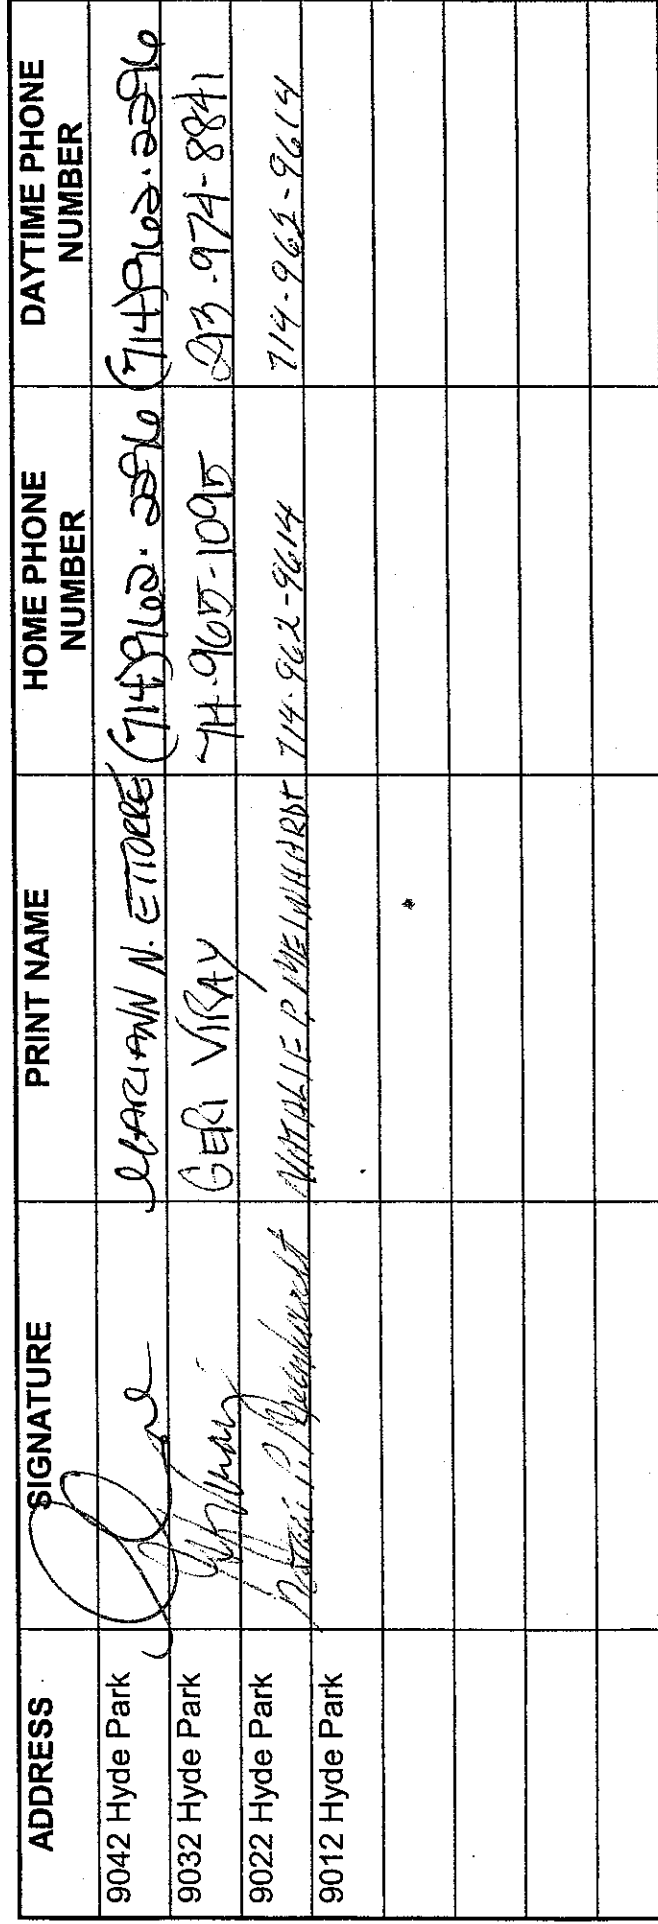 ADDRESS SIGNATURE PRINT NAME HOME PHONE NUMBER DAYTIME PHONE NUMBER
9042 Hyde Park MARIANN N. ETTORRE (714)962.2296 (714)962.2296
9032 Hyde Park GERI VIRAY 714-965-1095 213-974-8841
9022 Hyde Park Natalie P. Meinhardt NATALIE P. MEINHARDT 714-962-9614 714-962-9614
9012 Hyde Park